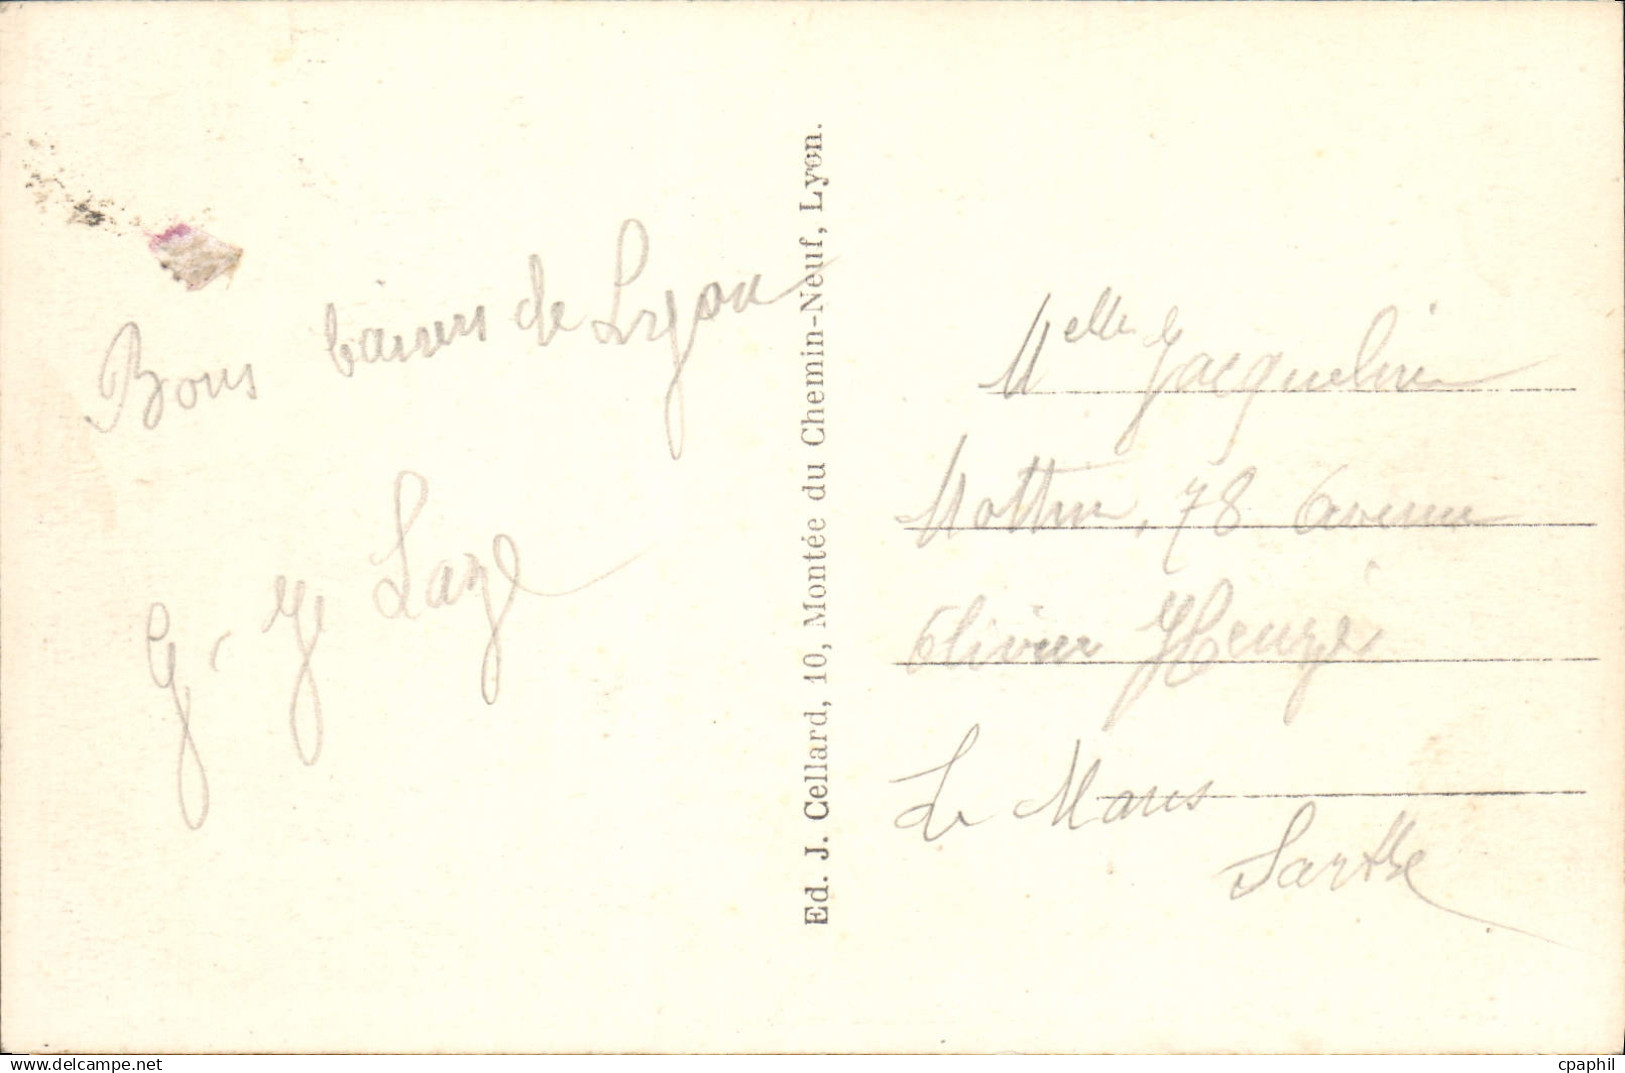 Bons baisers de Lyon
G. Y Laze
Ed. J. Cellard, 10, Montée du Chemin-Neuf, Lyon.
Melle Jacqueline
78 Avenue
Olivier Heuzé
Le Mans
Sarthe
delcampe.net
cpaphil